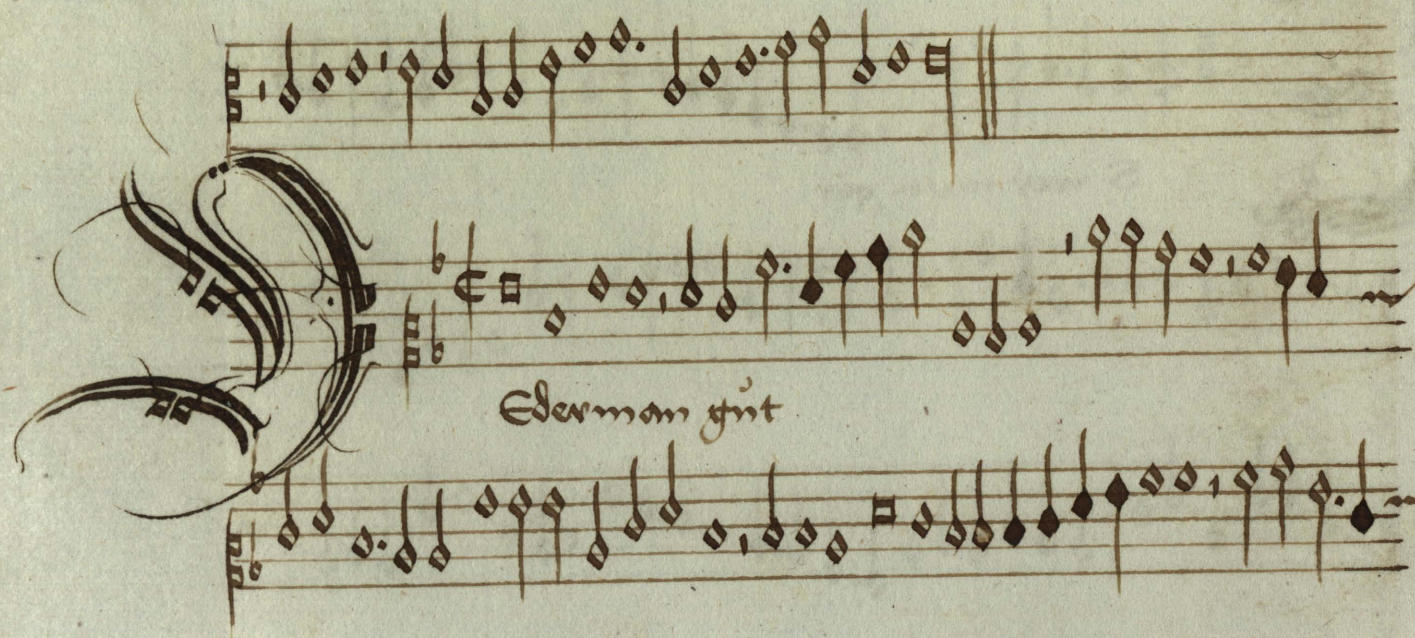 Ederman gůt